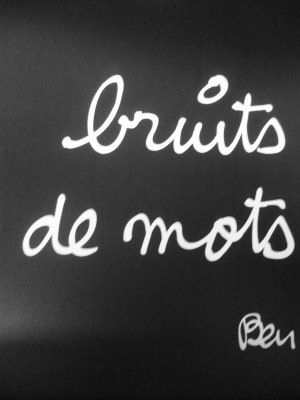 bruits
de mots
Ben